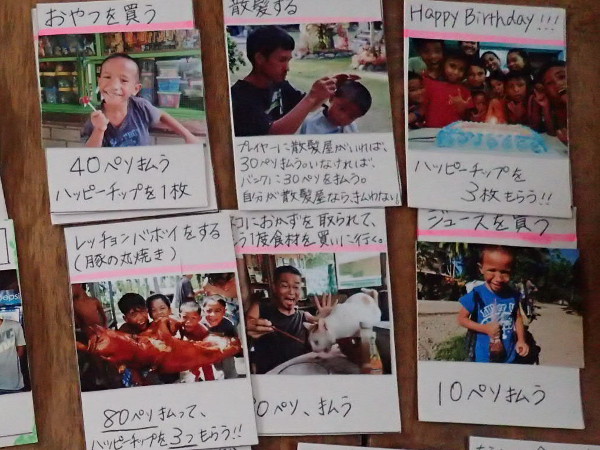 おやつを買う
40ペソ払う
ハッピーチップを1枚
散髪する
プレイヤーに散髪屋がいれば、
30ペソ払う。いなければ、
バンクに30ペソを払う。
自分が散髪屋なら、払わない
Happy Birthday!!!
ハッピーチップを
3枚もらう!!
レッチョンバボイをする
(豚の丸焼き)
80ペソ払って、
ハッピーチップを3つもらう!!
コにおかずを取られて、
う1度食材を買いに行く。
0ペソ、払う
ジュースを買う
10ペソ払う